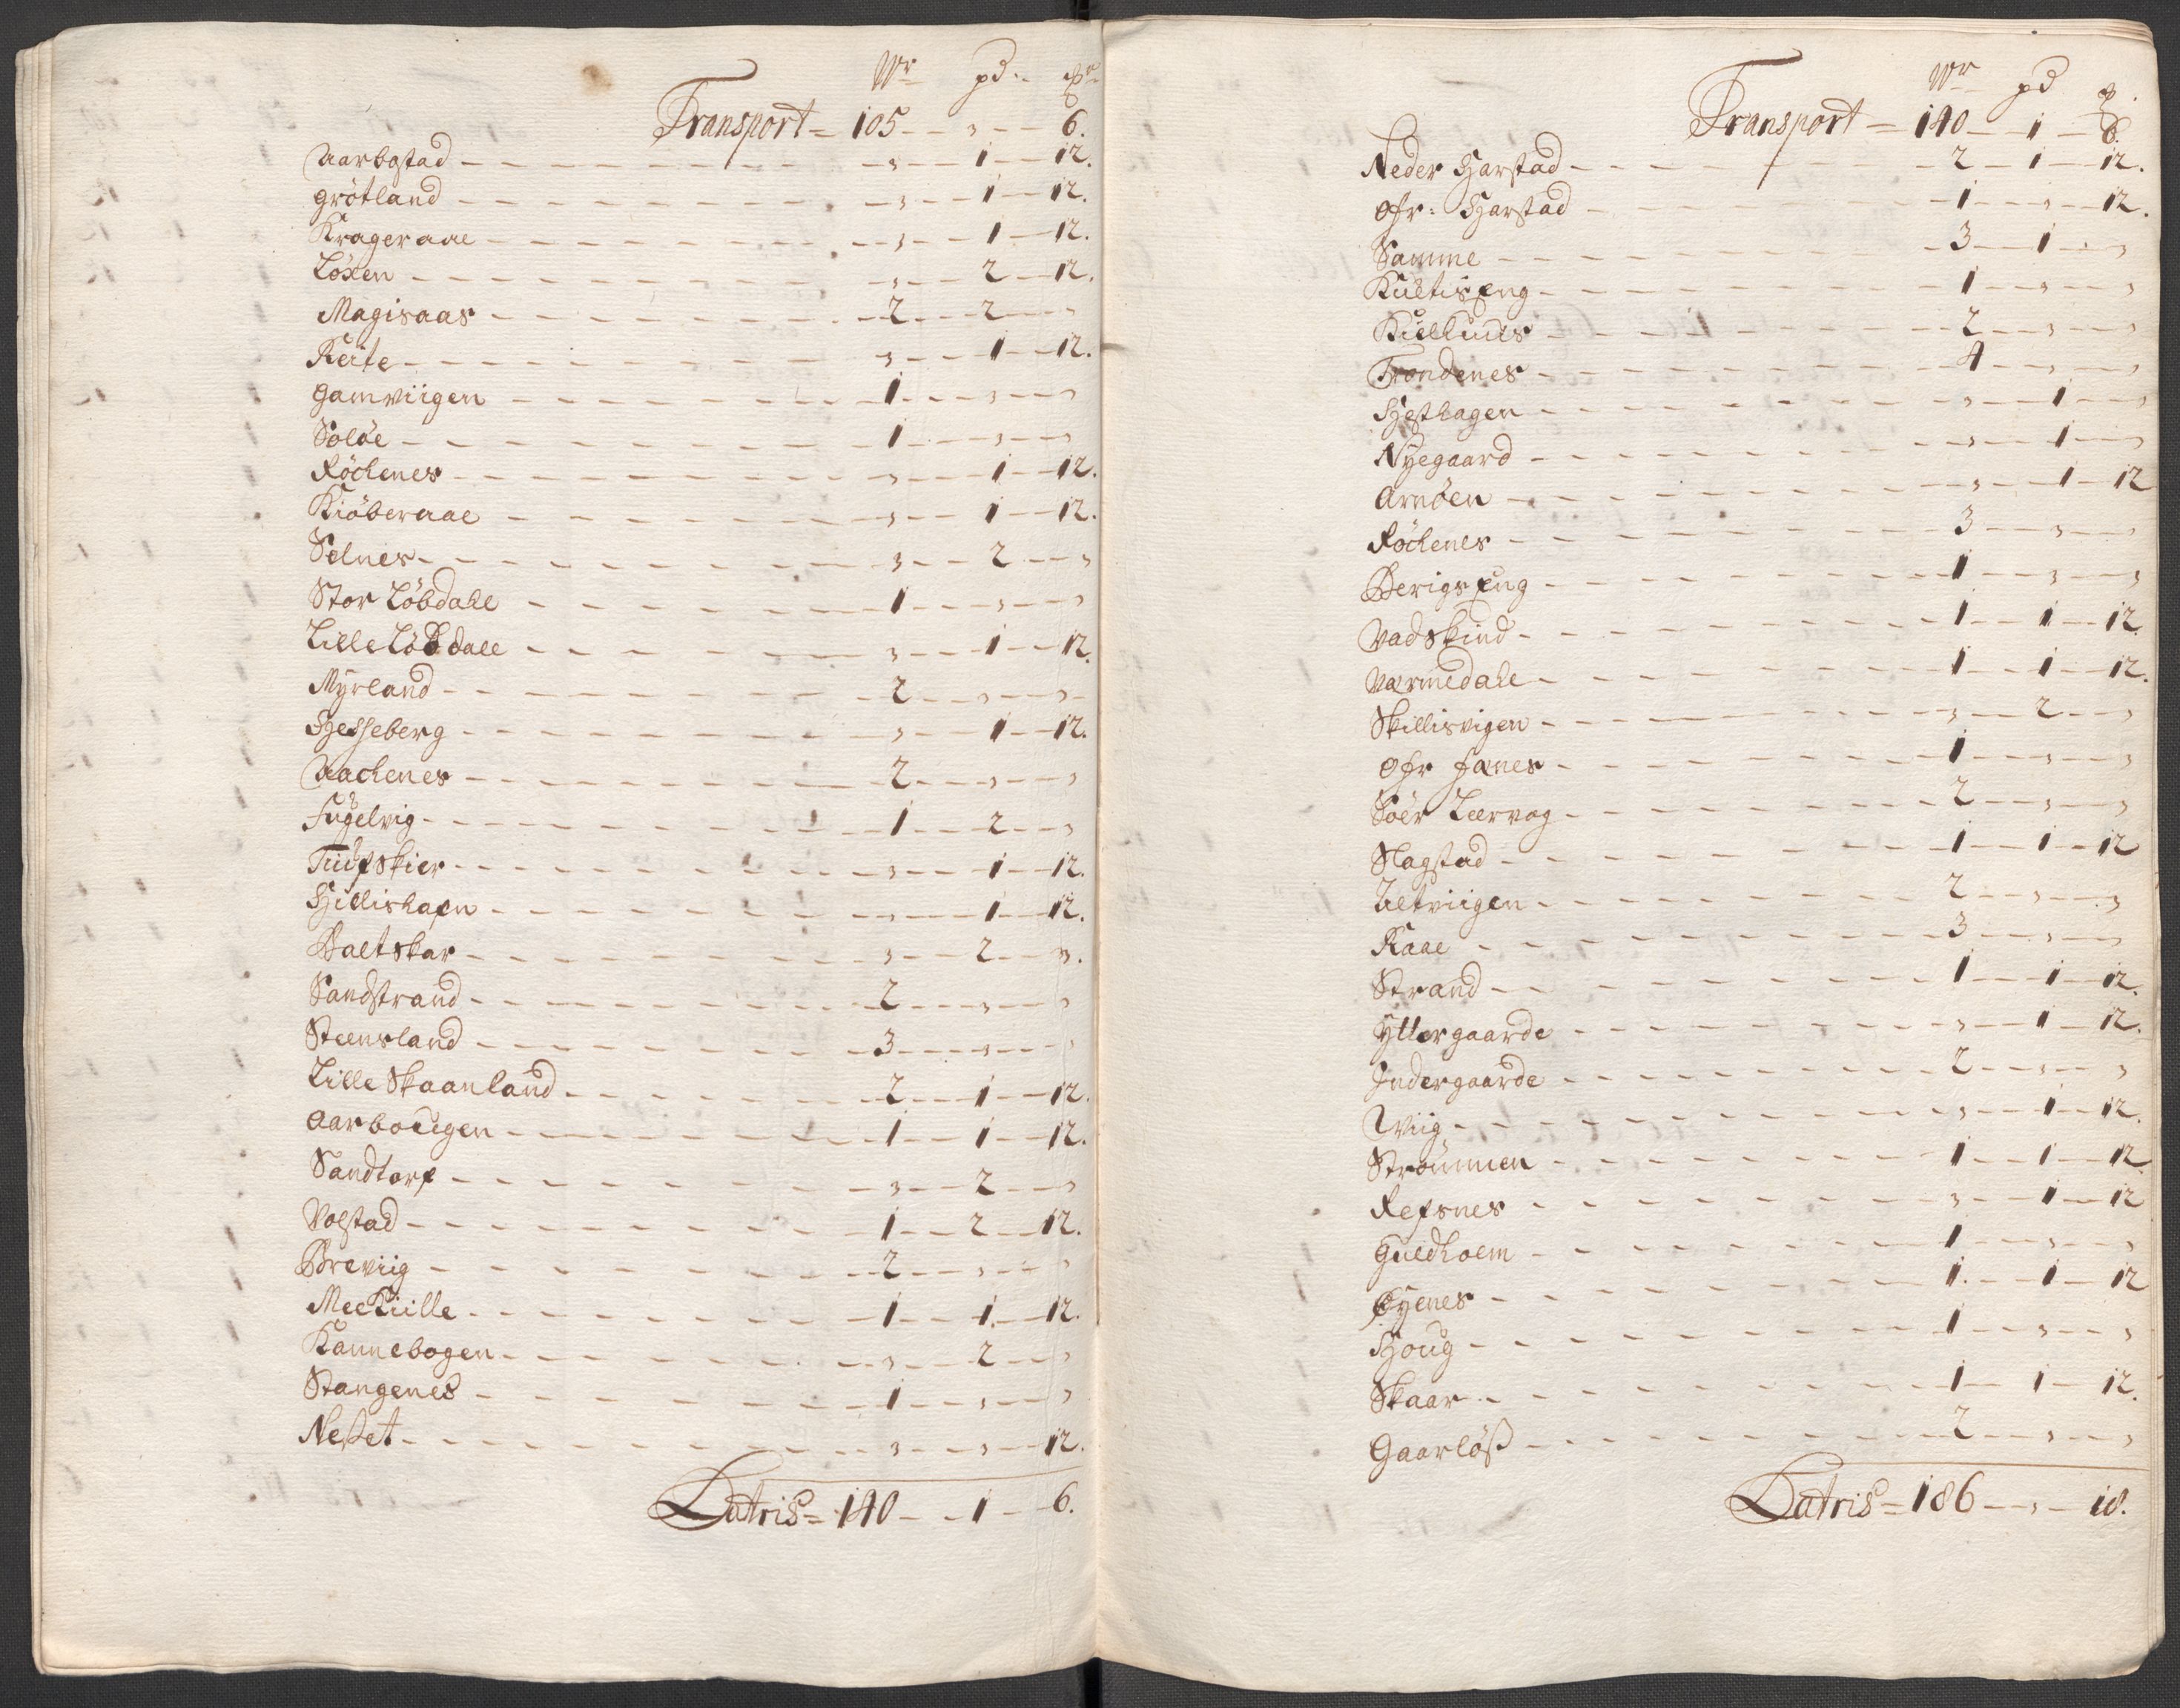 Wr pd. ℔r
Transport = 105 - - " - - 6.
Aarbostad - - - " - - 1 - 12.
Grötland - - - " - - 1 - 12.
Krageraae - - - " - - 1 - 12.
Löxen - - - " - - 2 - 12.
Magisaas - - - 2 - - 2 - - "
Keite - - - " - - 1 - 12.
Gamviigen - - - 1 - - " - - "
Soløe - - - 1 - - " - - "
Röchenes - - - " - - 1 - 12.
Kiöberaae - - - " - - 1 - 12.
Selnes - - - " - - 2 - - "
Stor Löbdahl - - - 1 - - " - - "
Lille Löbdall - - - " - - 1 - 12.
Myrland - - - 2 - - " - - "
Hesseberg - - - " - - 1 - 12.
Aachenes - - - 2 - - " - - "
Fugelvig - - - 1 - - 2 - - "
Tiufskier - - - " - - 1 - 12.
Hillishafn - - - " - - 1 - 12.
Baltskar - - - " - - 2 - - ".
Sandstrand - - - 2 - - " - - "
Steensland - - - 3 - - " - - "
Lille Skaanland - - - 2 - - 1 - 12.
Aarbougen - - - 1 - - 1 - 12.
Sandtorf - - - " - - 2 - - "
Volstad - - - 1 - - 2 - 12.
Breviig - - - 2 - - " - - "
Melkiille - - - 1 - - 1 - 12.
Kannebogen - - - " - - 2 - - "
Stangenes - - - 1 - - " - - "
Neset - - - " - - " - 12.
Latris = 140 - - 1 - - 6.
Wr pd ℔.
Transport = 140 - 1 - 6.
Neder Harstad - - - 2 - 1 - 12.
Ofr: Harstad - - - 1 - - " - 12.
Samme - - - 3 - - 1 - - "
Kultiseng - - - 1 - - " - - "
Kiilhuus - - - 2 - - " - - "
Trondenes - - - 4 - - " - - "
Hesthagen - - - " - - 1 - - "
Nyegaard - - - " - - 1 - - "
Arnöen - - - " - - 1 - 12
Röchenes - - - 3 - - " - - "
Berigseng - - - 1 - - " - - "
Vadskind - - - 1 - - 1 - 12.
Varmedahl - - - 1 - - 1 - 12.
Skillisvigen - - - " - - 2 - - "
Ofr Fænes - - - 1 - - " - - "
Söer Leervog - - - 2 - - " - - "
Slagstad - - - 1 - - 1 - 12
Altviigen - - - 2 - - " - - "
Kaae - - - 3 - - " - - "
Strand - - - 1 - - 1 - 12.
Yttergaarde - - - " - - 1 - 12.
Indergaarde - - - 2 - - " - - "
Wiig - - - " - - 1 - 12.
Strommen - - - 1 - - 1 - 12
Refsnes - - - " - - 1 - 12
Guldholm - - - 1 - - " - - "
Øyenes - - - 1 - - 1 - 12
Houg - - - 1 - - " - - "
Skaar - - - 1 - 1 - 12.
Gaarlöß - - - 2 - - " - - "
Latris = 186 - - " - 18.